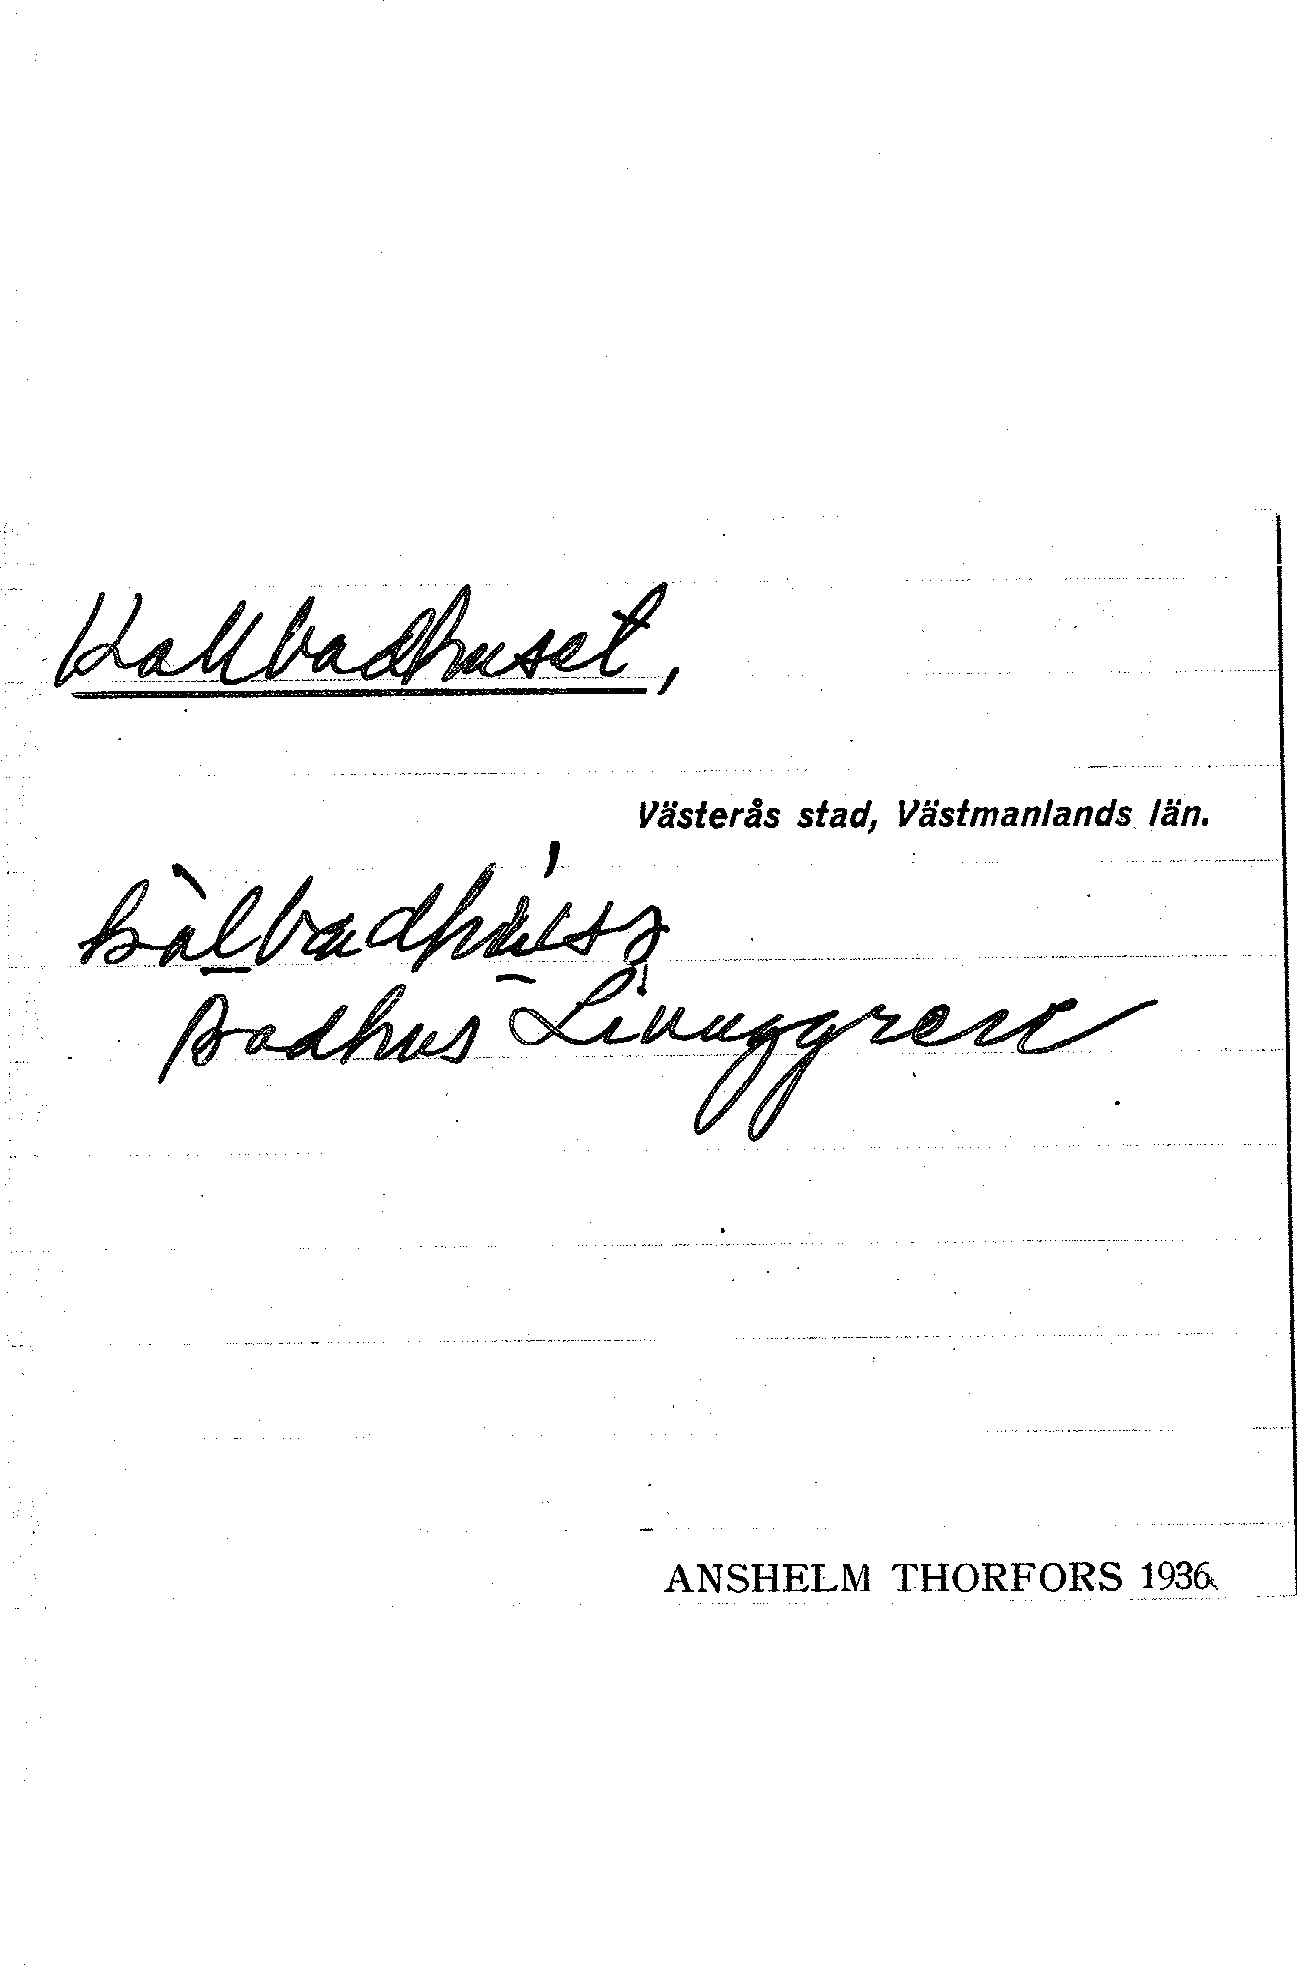 Kallbadhuset,
Västerås stad, Västmanlands län.
Badhus Ljunggren
ANSHELM THORFORS 1936.